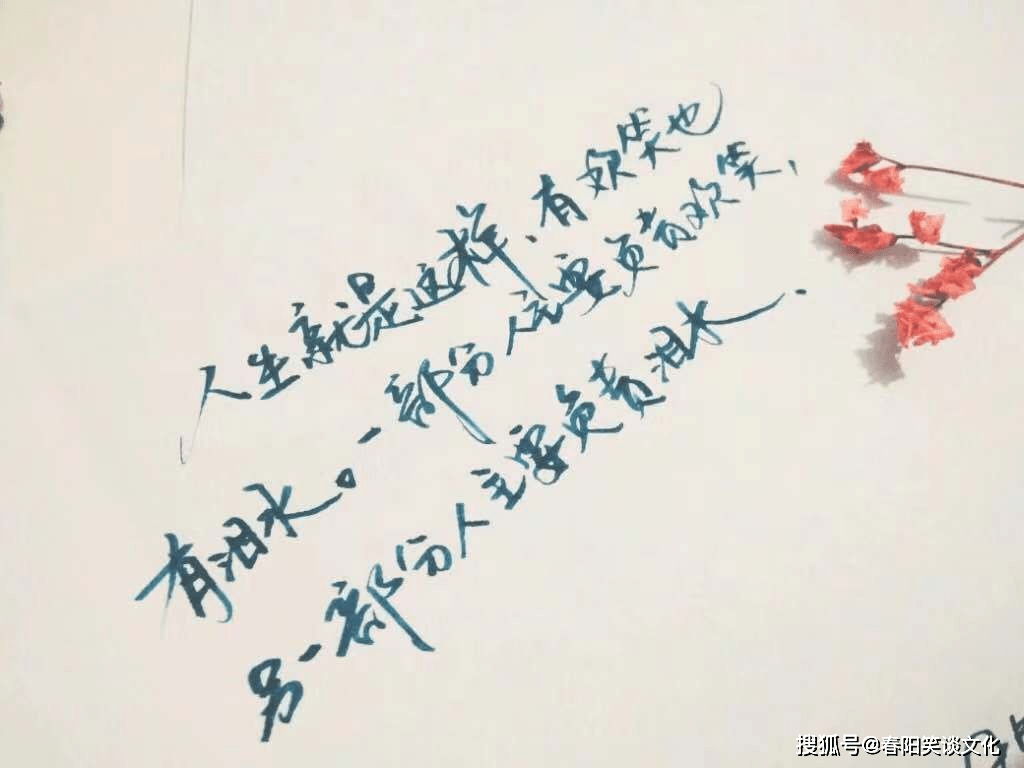 人生就是这样、有欢笑也
有泪水。一部份人主要负责欢笑，
另一部份人主要负责泪水.
搜狐号@春阳笑谈文化